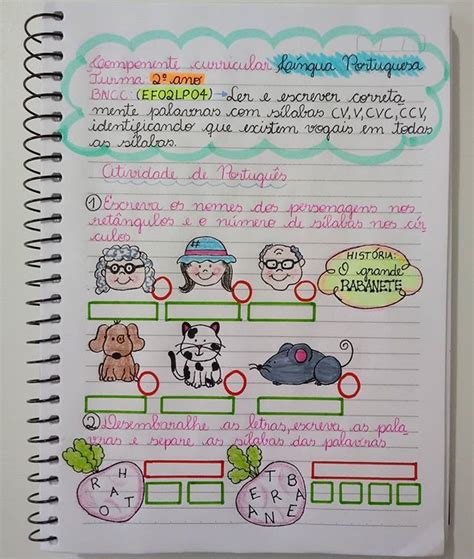 Componente curricular Língua Portuguesa
Turma 2º ano
BNCC: (EF02LP04) → Ler e escrever correta
mente palavras com sílabas CV, V, CVC, CCV,
identificando que existem vogais em todas
as sílabas.
Atividade de Português
1 Escreva os nomes dos personagens nos
retângulos e o número de sílabas nos cír
culos
HISTÓRIA:
O grande
RABANETE
2 Desembaralhe as letras, escreva as pala
vras e separe as sílabas das palavras
H
R A T
O
T B
E R A
A N E